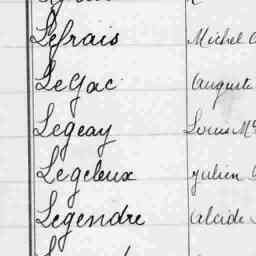 Lefrais Michel
Le Gac Auguste
Legeay Louis M
Legeleux Julien
Legendre Alcide